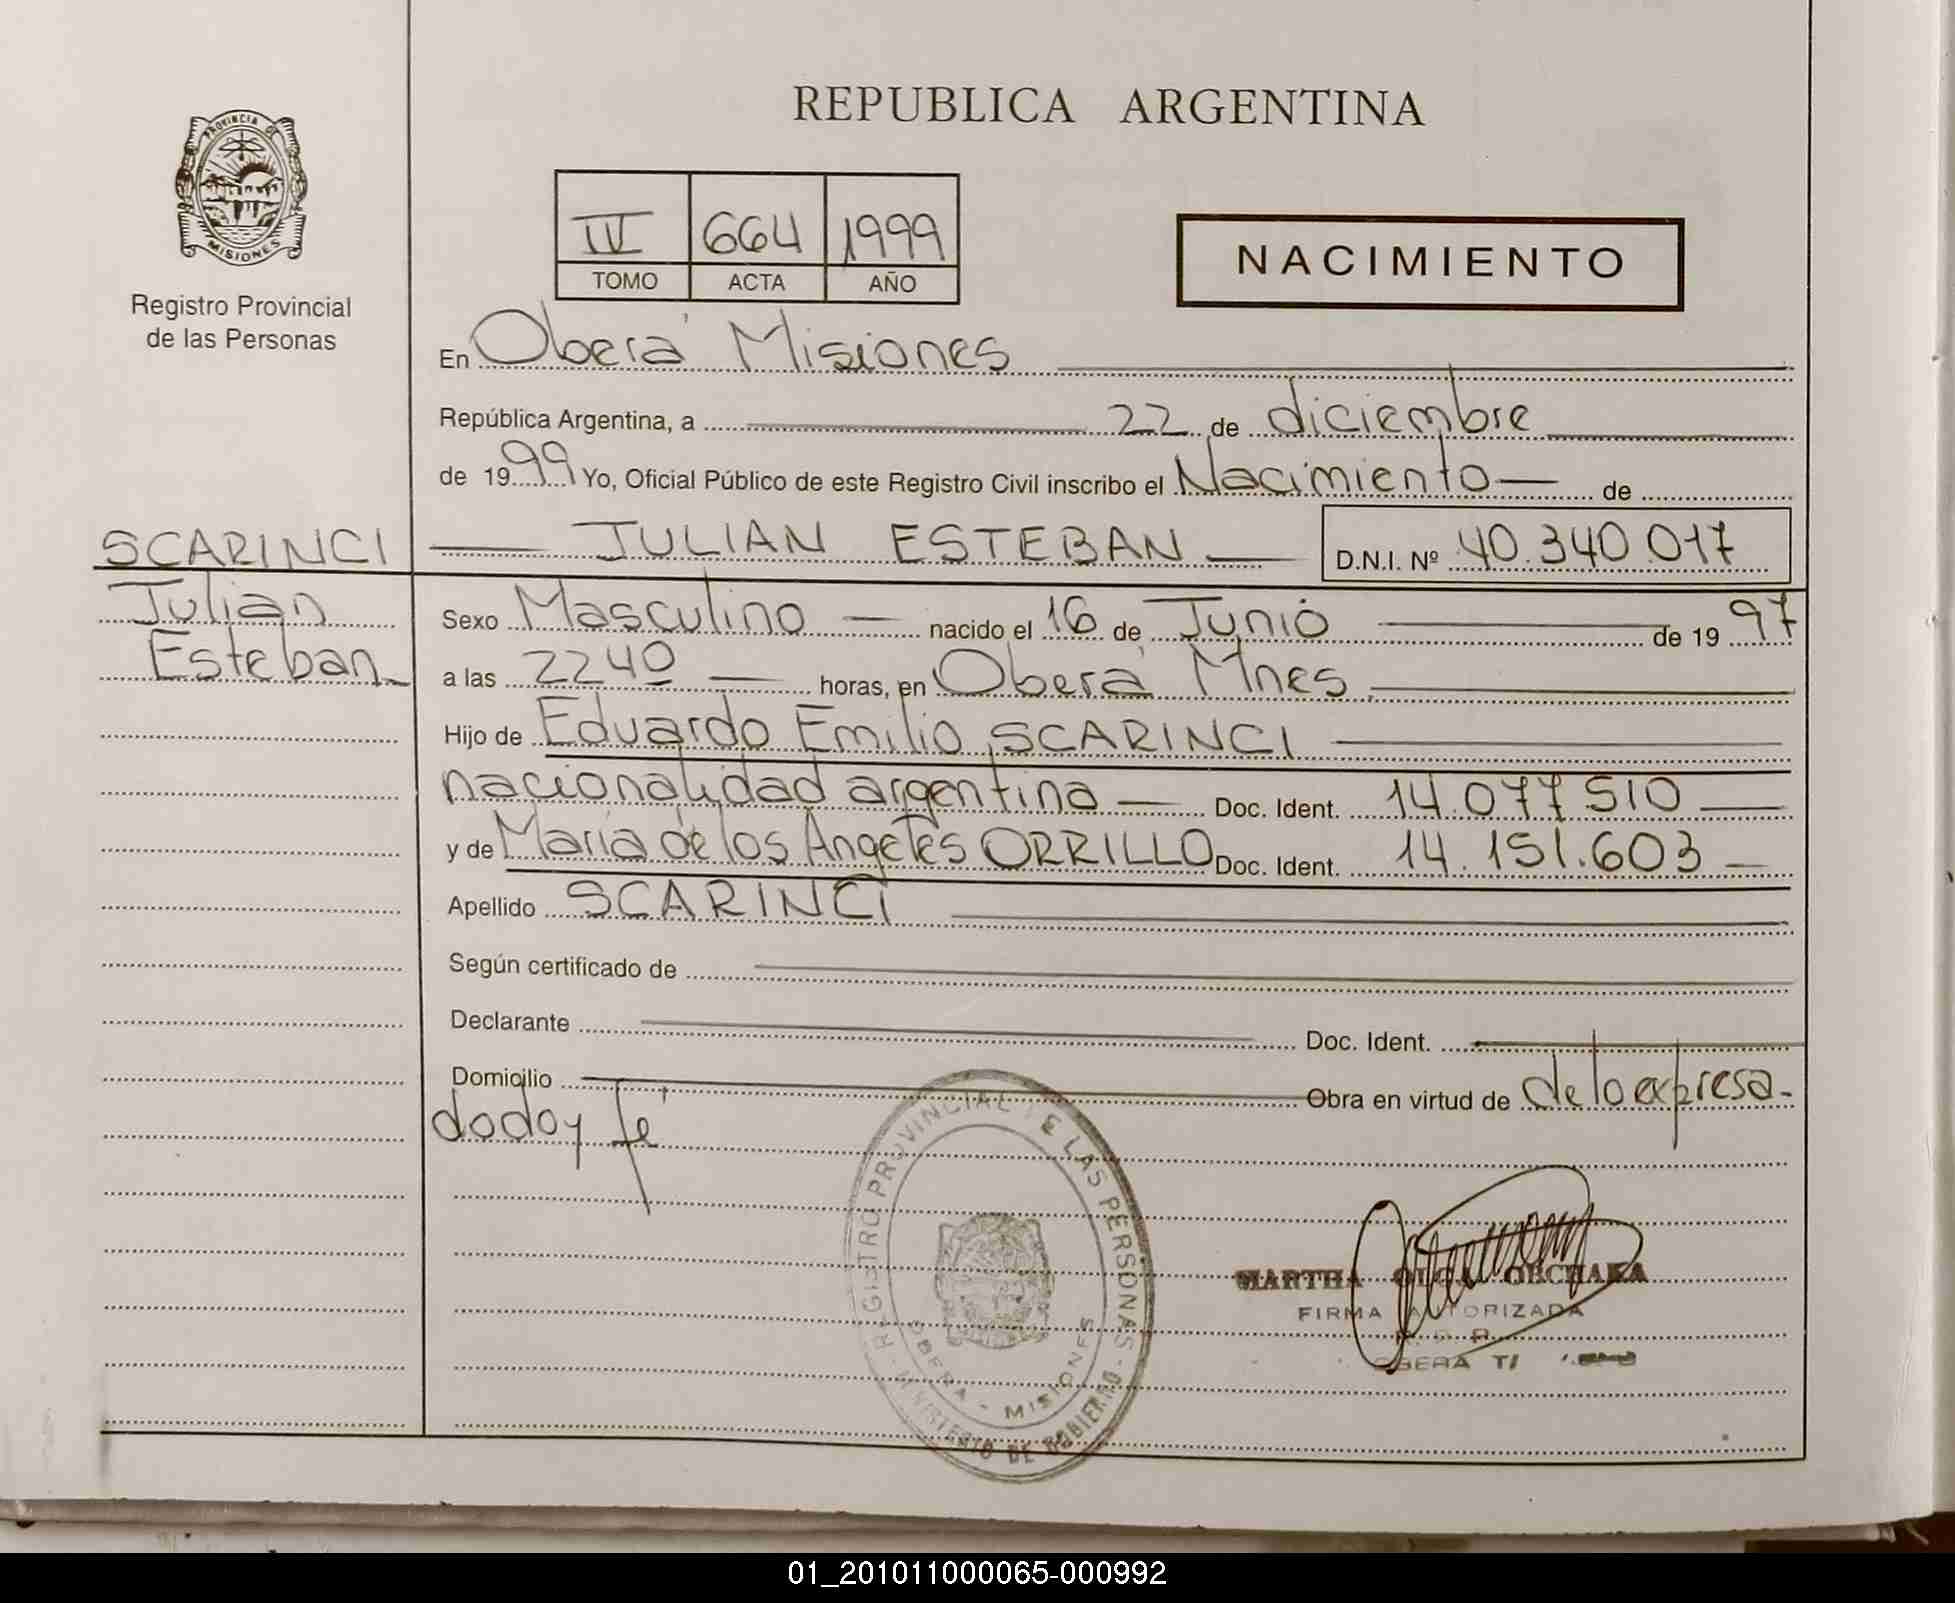 REPUBLICA ARGENTINA
PROVINCIA DE
MISIONES
Registro Provincial
de las Personas
IV 664 1999
TOMO ACTA AÑO
NACIMIENTO
En Oberá Misiones
República Argentina, a 22 de diciembre
de 1999 Yo, Oficial Público de este Registro Civil inscribo el Nacimiento de
SCARINCI
Julian
Esteban
JULIAN ESTEBAN D.N.I. Nº 40.340.017
Sexo Masculino nacido el 16 de Junio de 1997
a las 2240 horas, en Oberá Mnes
Hijo de Eduardo Emilio SCARINCI
nacionalidad argentina Doc. Ident. 14.077510
y de María de los Angeles ORRILLO Doc. Ident. 14.151.603
Apellido SCARINCI
Según certificado de
Declarante Doc. Ident.
Domicilio Obra en virtud de de lo expresa-
do doy fé
REGISTRO PROVINCIAL DE LAS PERSONAS
OBERA - MISIONES
MINISTERIO DE GOBIERNO
MARTHA OLGA
FIRMA AUTORIZADA
OBERA
01_201011000065-000992